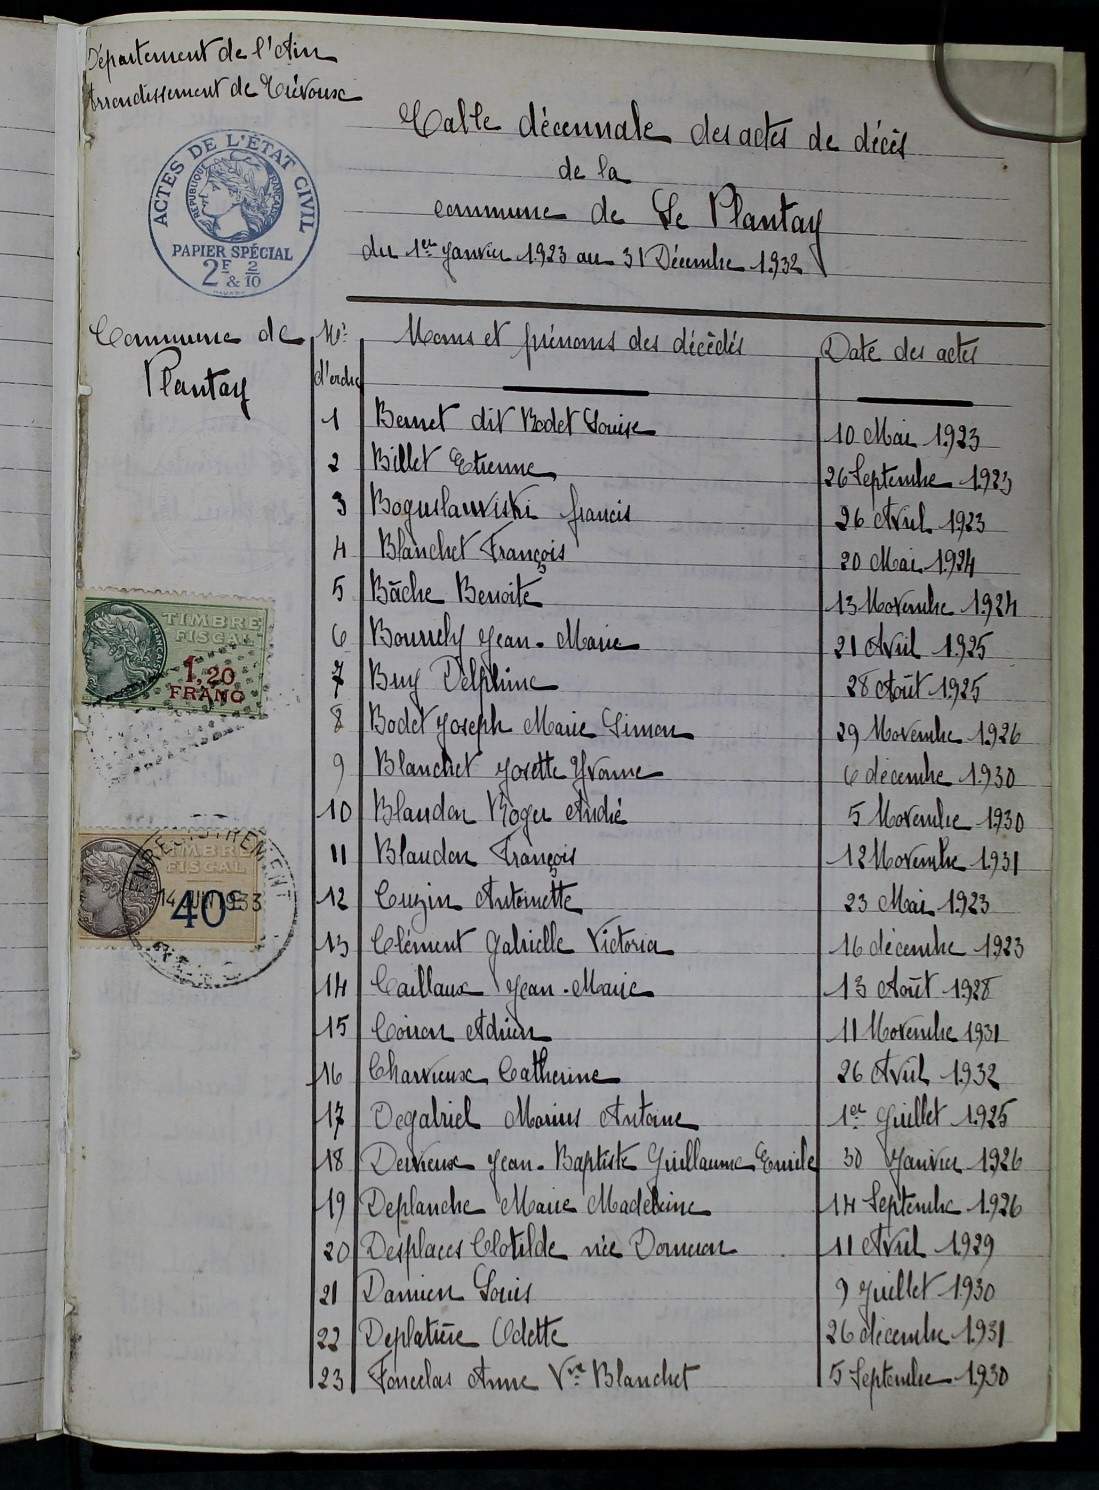 Département de l'Ain
Arrondissement de Trévoux
Table décennale des actes de décès
de la
commune de Le Plantay
du 1er janvier 1923 au 31 Décembre 1932
ACTES DE L'ÉTAT CIVIL
RÉPUBLIQUE FRANÇAISE
PAPIER SPÉCIAL
2F & 2/10
Commune de
Plantay
Nos d'ordre | Noms et prénoms des décédés | Date des actes
1 Bernet dit Bodet Louise 10 Mai 1923
2 Billet Etienne 26 Septembre 1923
3 Boguslawiski francis 26 Avril 1923
4 Blanchet François 20 Mai 1924
5 Bâche Benoite 13 Novembre 1924
6 Bourrely Jean-Marie 21 Avril 1925
7 Buy Delphine 28 Août 1925
8 Bodet Joseph Marie Simon 29 Novembre 1926
9 Blanchet Josette Yvonne 6 décembre 1930
10 Blandon Roger André 5 Novembre 1930
11 Blandon François 12 Novembre 1931
12 Cuzin Antoinette 23 Mai 1923
13 Clément Gabrielle Victoria 16 décembre 1923
14 Caillaux Jean-Marie 13 Août 1928
15 Coiron Adrien 11 Novembre 1931
16 Charvieux Catherine 26 Avril 1932
17 Degabriel Marius Antoine 1er Juillet 1925
18 Dervieux Jean-Baptiste Guillaume Emile 30 Janvier 1926
19 Deplanche Marie Madeleine 14 Septembre 1926
20 Desplaces Clotilde née 11 Avril 1929
21 Damien Louis 9 Juillet 1930
22 Deplatière Odette 26 décembre 1931
23 Anne Vve Blanchet 5 Septembre 1930
TIMBRE
FISCAL
1,20
FRANC
TIMBRE
FISCAL
40c
ENREGISTREMENT
14 JUIN 1933